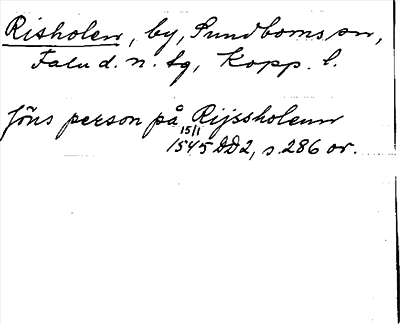 Risholen, by, Sundborns sn,
Falu d. n. tg, Kopp. l.
Jöns person på Rijssholenn
15/1
1545 DD2, s. 286 or.